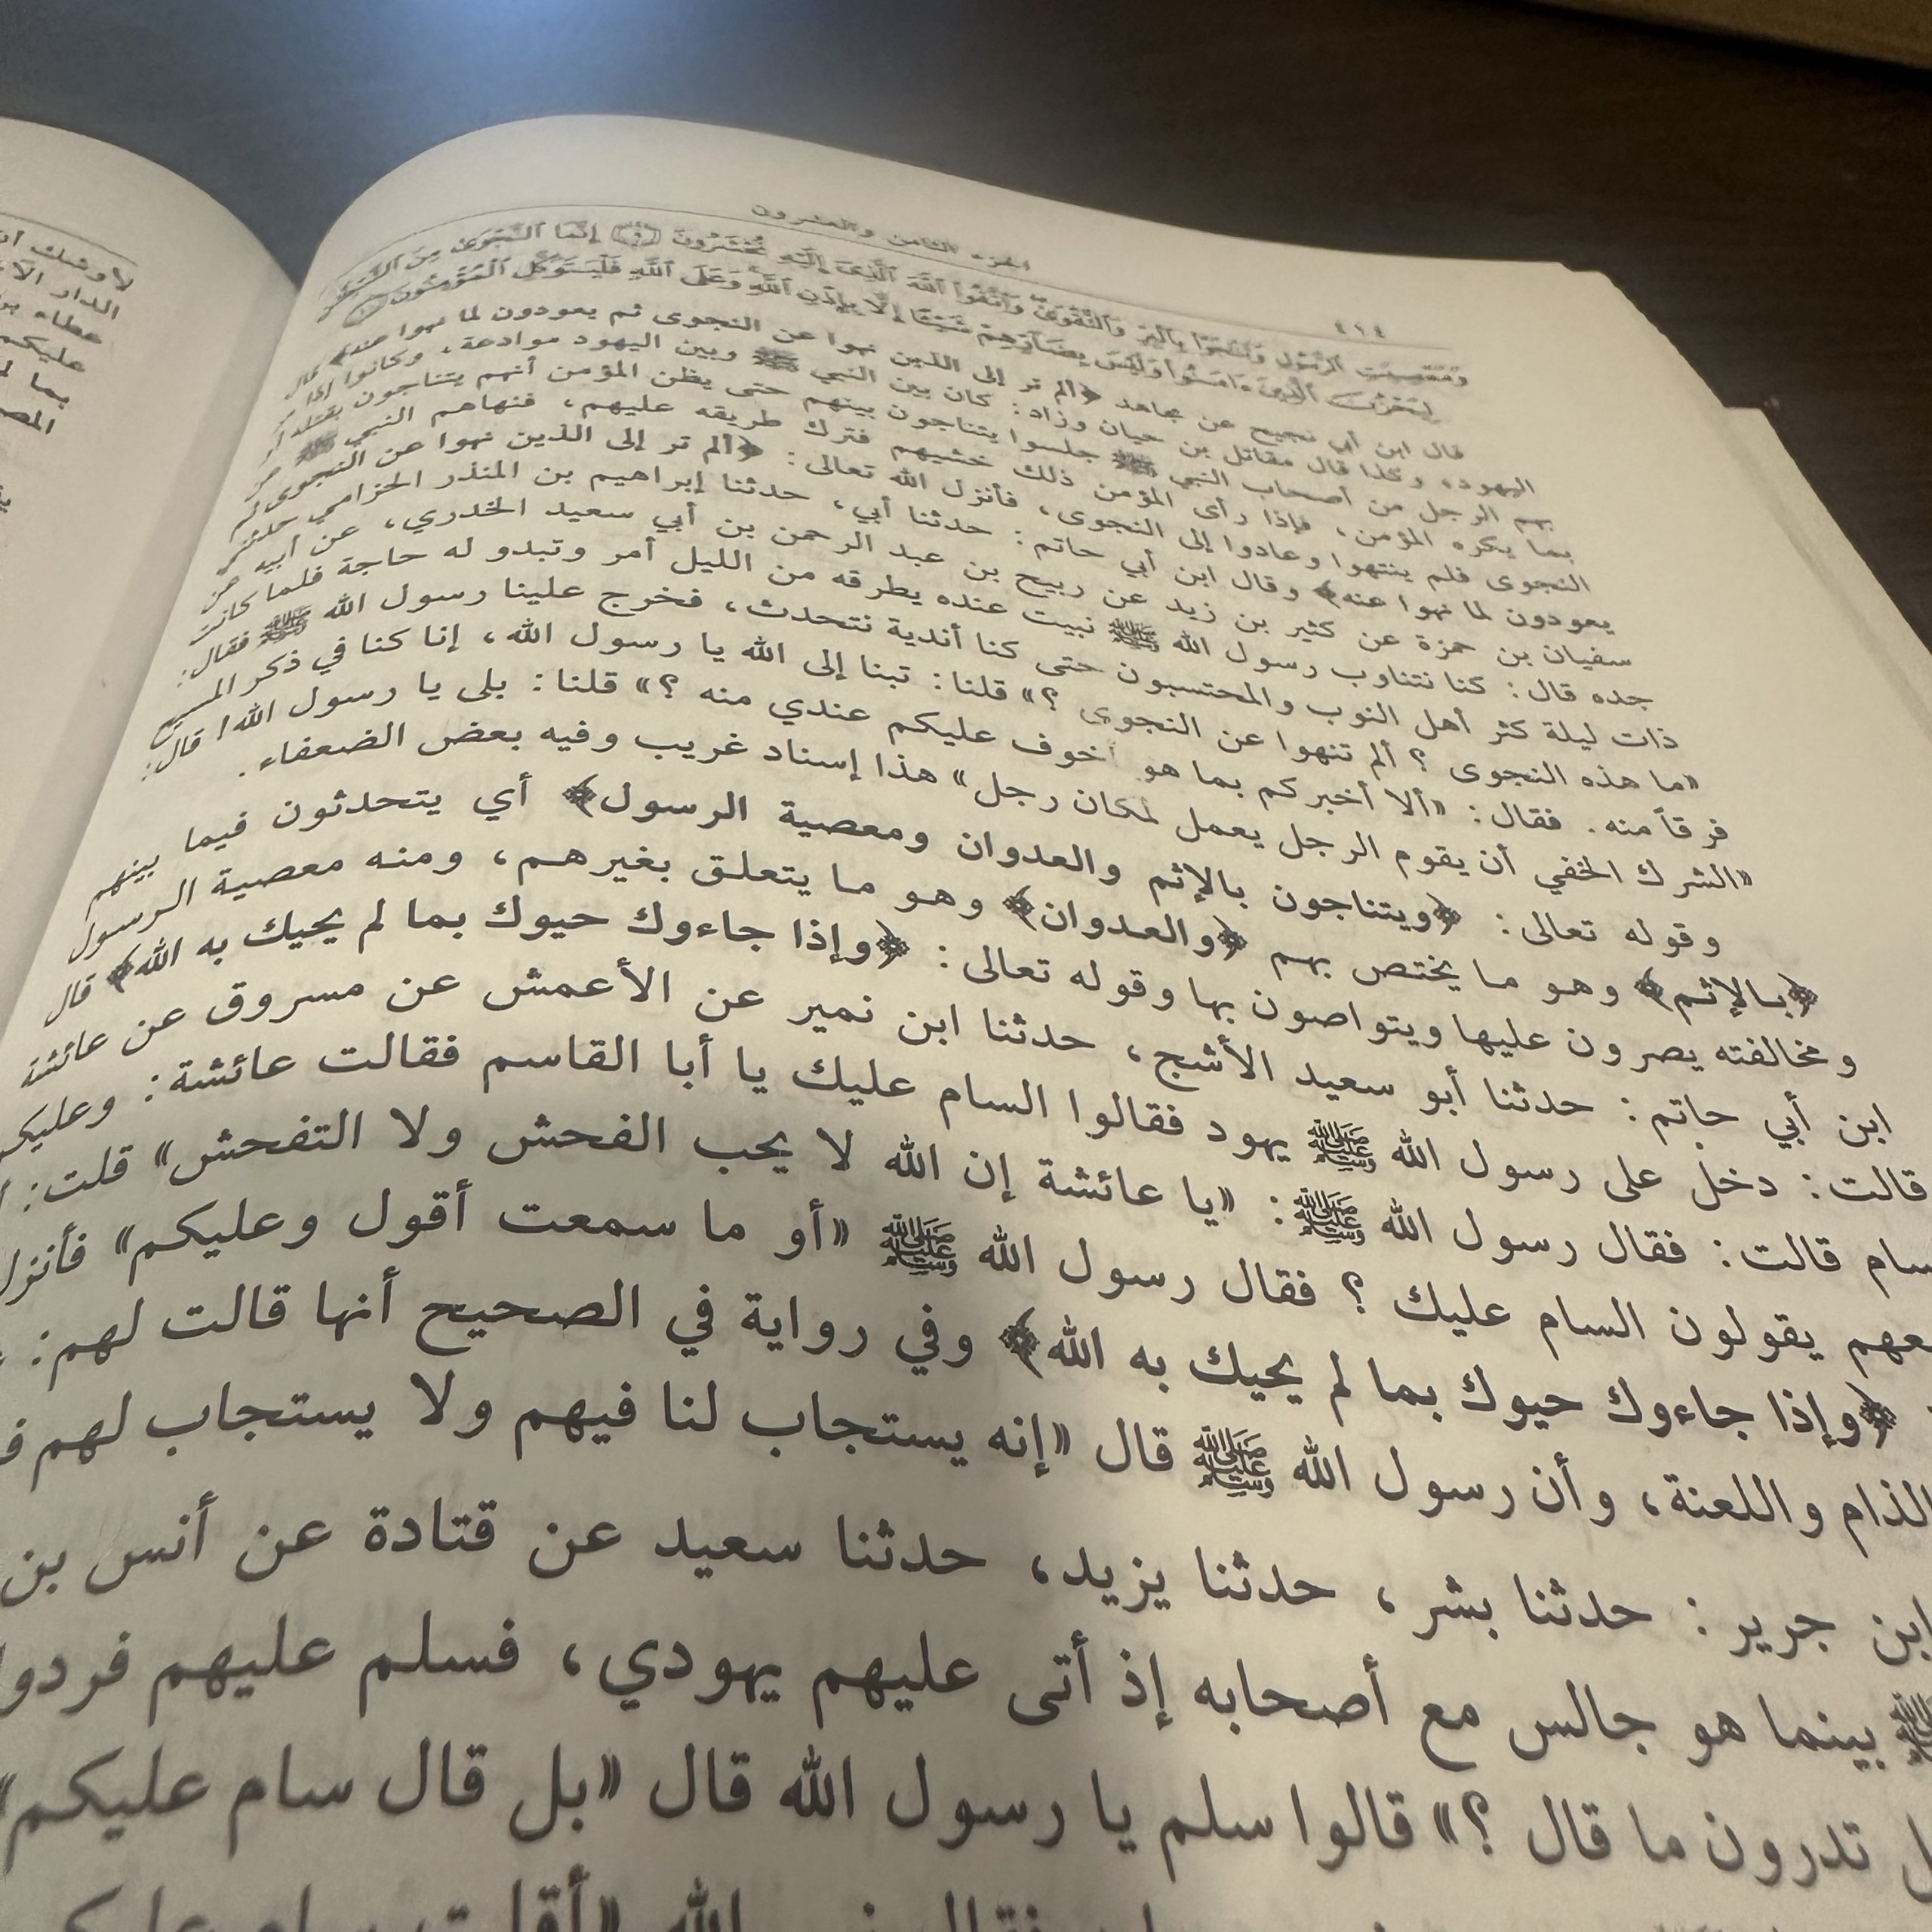 الجزء الثامن والعشرون
٤١٤
وَمَعْصِيَتِ ٱلرَّسُولِ وَتَنَٰجَوْا۟ بِٱلْبِرِّ وَٱلتَّقْوَىٰ وَٱتَّقُوا۟ ٱللَّهَ ٱلَّذِىٓ إِلَيْهِ تُحْشَرُونَ ۝ إِنَّمَا ٱلنَّجْوَىٰ مِنَ ٱلشَّيْطَٰنِ
لِيَحْزُنَ ٱلَّذِينَ ءَامَنُوا۟ وَلَيْسَ بِضَآرِّهِمْ شَيْـًٔا إِلَّا بِإِذْنِ ٱللَّهِ وَعَلَى ٱللَّهِ فَلْيَتَوَكَّلِ ٱلْمُؤْمِنُونَ
قال ابن أبي نجيح عن مجاهد ﴿ألم تر إلى الذين نهوا عن النجوى ثم يعودون لما نهوا عنه﴾ قال
اليهود، وكذا قال مقاتل بن حيان وزاد: كان بين النبي ﷺ وبين اليهود موادعة، وكانوا إذا
بهم الرجل من أصحاب النبي ﷺ جلسوا يتناجون بينهم حتى يظن المؤمن أنهم يتناجون بقتله أو
بما يكره المؤمن، فإذا رأى المؤمن ذلك خشيهم فترك طريقه عليهم، فنهاهم النبي ﷺ عن
النجوى فلم ينتهوا وعادوا إلى النجوى، فأنزل الله تعالى: ﴿ألم تر إلى الذين نهوا عن النجوى ثم
يعودون لما نهوا عنه﴾ وقال ابن أبي حاتم: حدثنا أبي، حدثنا إبراهيم بن المنذر الحزامي حدثني
سفيان بن حمزة عن كثير بن زيد عن ربيح بن عبد الرحمن بن أبي سعيد الخدري، عن أبيه عن
جده قال: كنا نتناوب رسول الله ﷺ نبيت عنده يطرقه من الليل أمر وتبدو له حاجة فلما كانت
ذات ليلة كثر أهل النوب والمحتسبون حتى كنا أندية نتحدث، فخرج علينا رسول الله ﷺ فقال:
«ما هذه النجوى ؟ ألم تنهوا عن النجوى ؟» قلنا: تبنا إلى الله يا رسول الله، إنا كنا في ذكر المسيح
فرقاً منه. فقال: «ألا أخبركم بما هو أخوف عليكم عندي منه ؟» قلنا: بلى يا رسول الله! قال:
«الشرك الخفي أن يقوم الرجل يعمل لمكان رجل» هذا إسناد غريب وفيه بعض الضعفاء.
وقوله تعالى: ﴿ويتناجون بالإثم والعدوان ومعصية الرسول﴾ أي يتحدثون فيما بينهم
﴿بالإثم﴾ وهو ما يختص بهم ﴿والعدوان﴾ وهو ما يتعلق بغيرهم، ومنه معصية الرسول
ومخالفته يصرون عليها ويتواصون بها وقوله تعالى: ﴿وإذا جاءوك حيوك بما لم يحيك به الله﴾ قال
ابن أبي حاتم: حدثنا أبو سعيد الأشج، حدثنا ابن نمير عن الأعمش عن مسروق عن عائشة
قالت: دخل على رسول الله ﷺ يهود فقالوا السام عليك يا أبا القاسم فقالت عائشة: وعليكم
سام قالت: فقال رسول الله ﷺ: «يا عائشة إن الله لا يحب الفحش ولا التفحش» قلت:
يقولون السام عليك ؟ فقال رسول الله ﷺ «أو ما سمعت أقول وعليكم» فأنزل
﴿وإذا جاءوك حيوك بما لم يحيك به الله﴾ وفي رواية في الصحيح أنها قالت لهم:
الذام واللعنة، وأن رسول الله ﷺ قال «إنه يستجاب لنا فيهم ولا يستجاب لهم
ابن جرير: حدثنا بشر، حدثنا يزيد، حدثنا سعيد عن قتادة عن أنس بن
ﷺ بينما هو جالس مع أصحابه إذ أتى عليهم يهودي، فسلم عليهم فردوا
تدرون ما قال ؟» قالوا سلم يا رسول الله قال «بل قال سام عليكم»